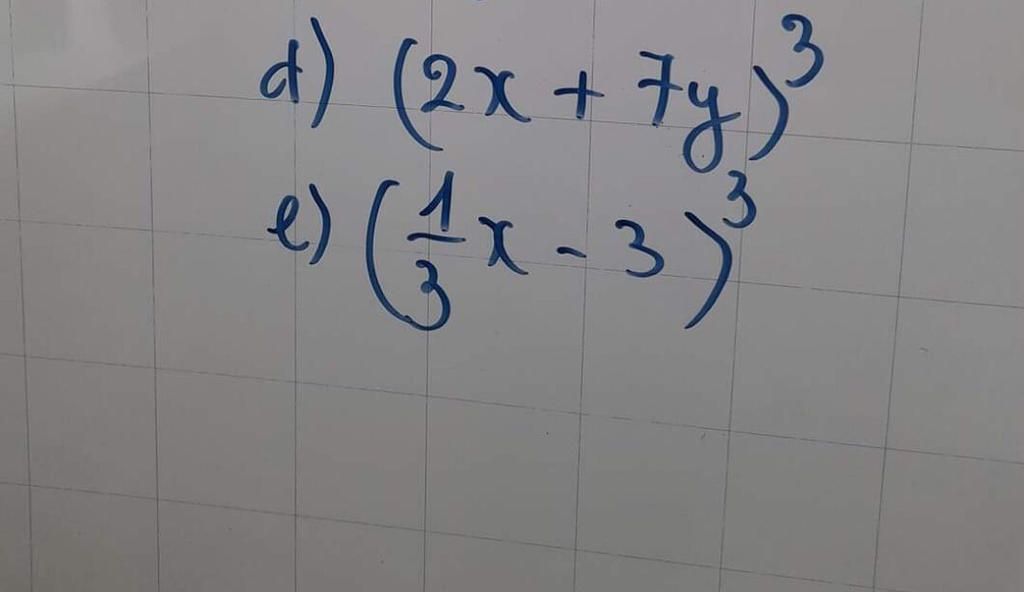 d) (2x + 7y)³
e) (1/3 x - 3)³